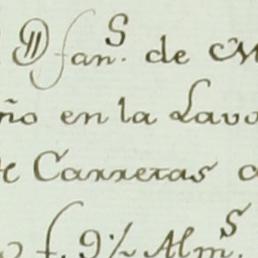 fan.s de
ño en la Lavo
de Carreras
9½ Alm.s